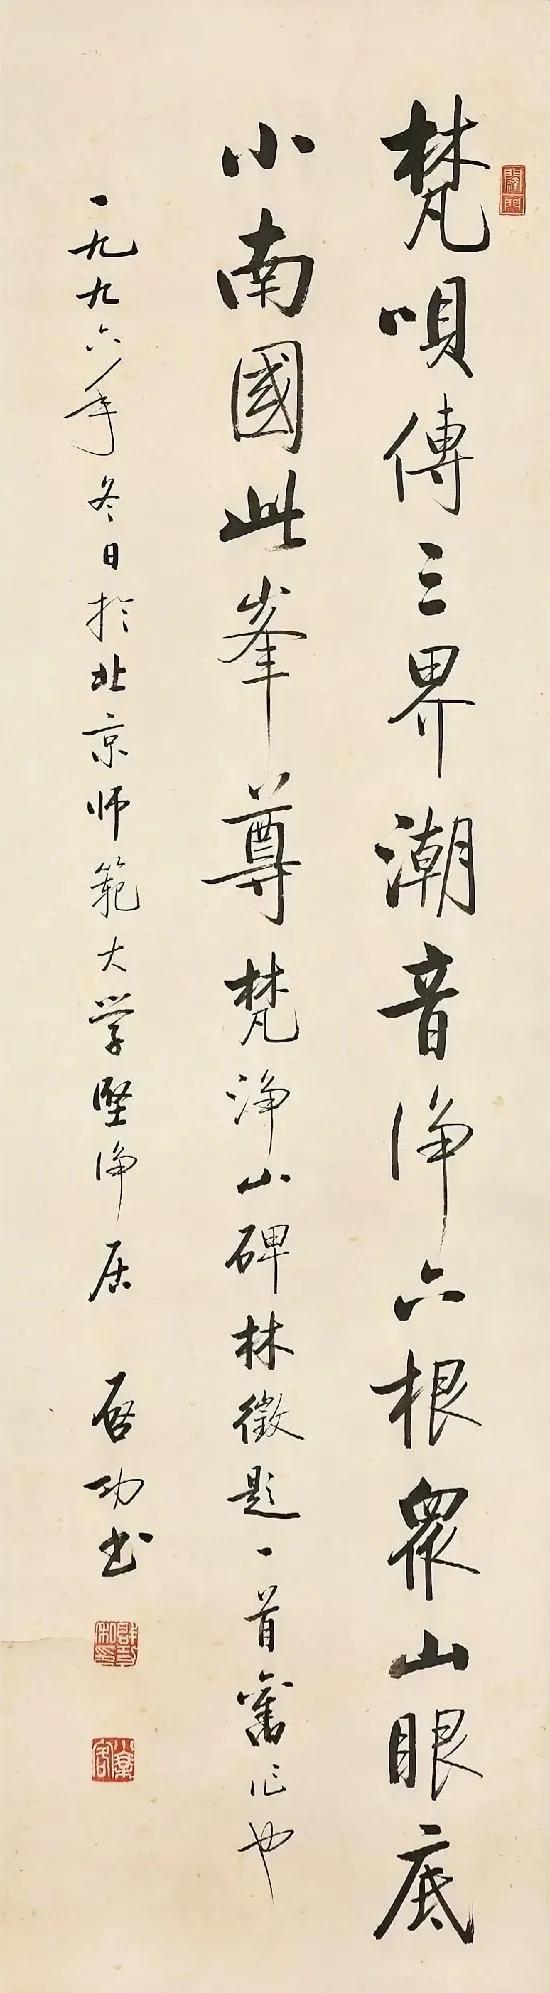 梵唄傳三界潮音淨六根衆山眼底
小南國此峯尊梵淨山碑林徵題一首舊作也
一九九六年冬日於北京师範大学堅淨居 启功书